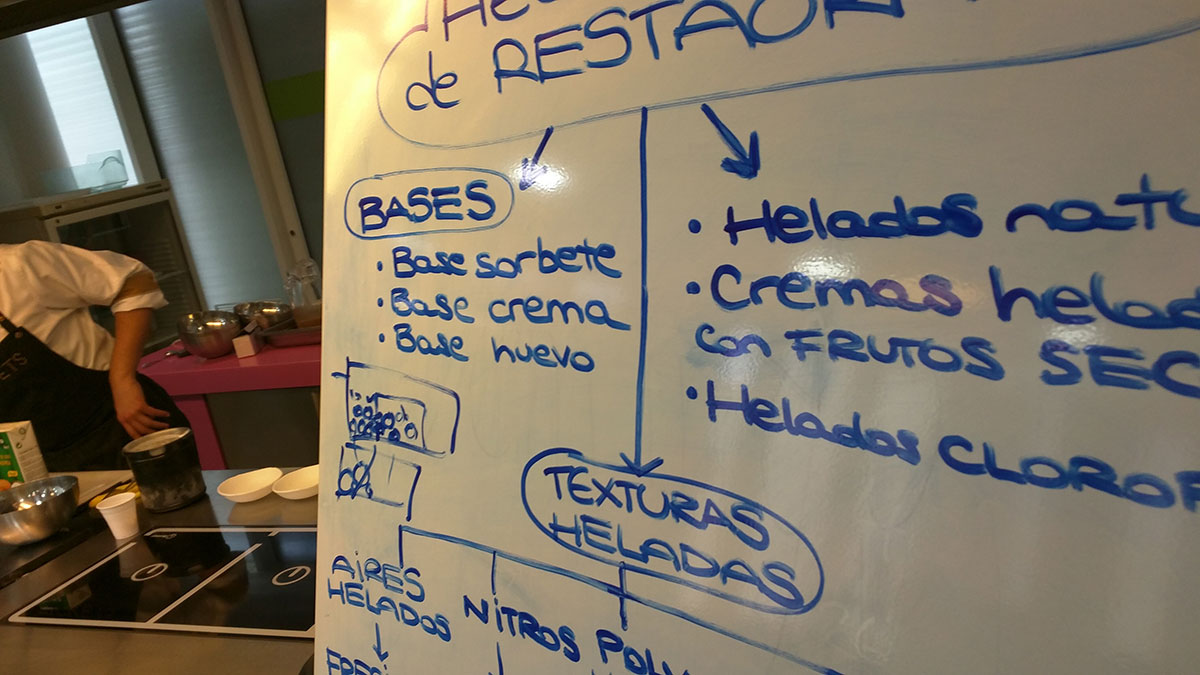 de RESTAU
BASES
• Base sorbete
• Base crema
• Base huevo
• Helados
• Cremas
con FRUTOS
• Helados
TEXTURAS
HELADAS
AIRES
HELADOS
NITROS
ETS